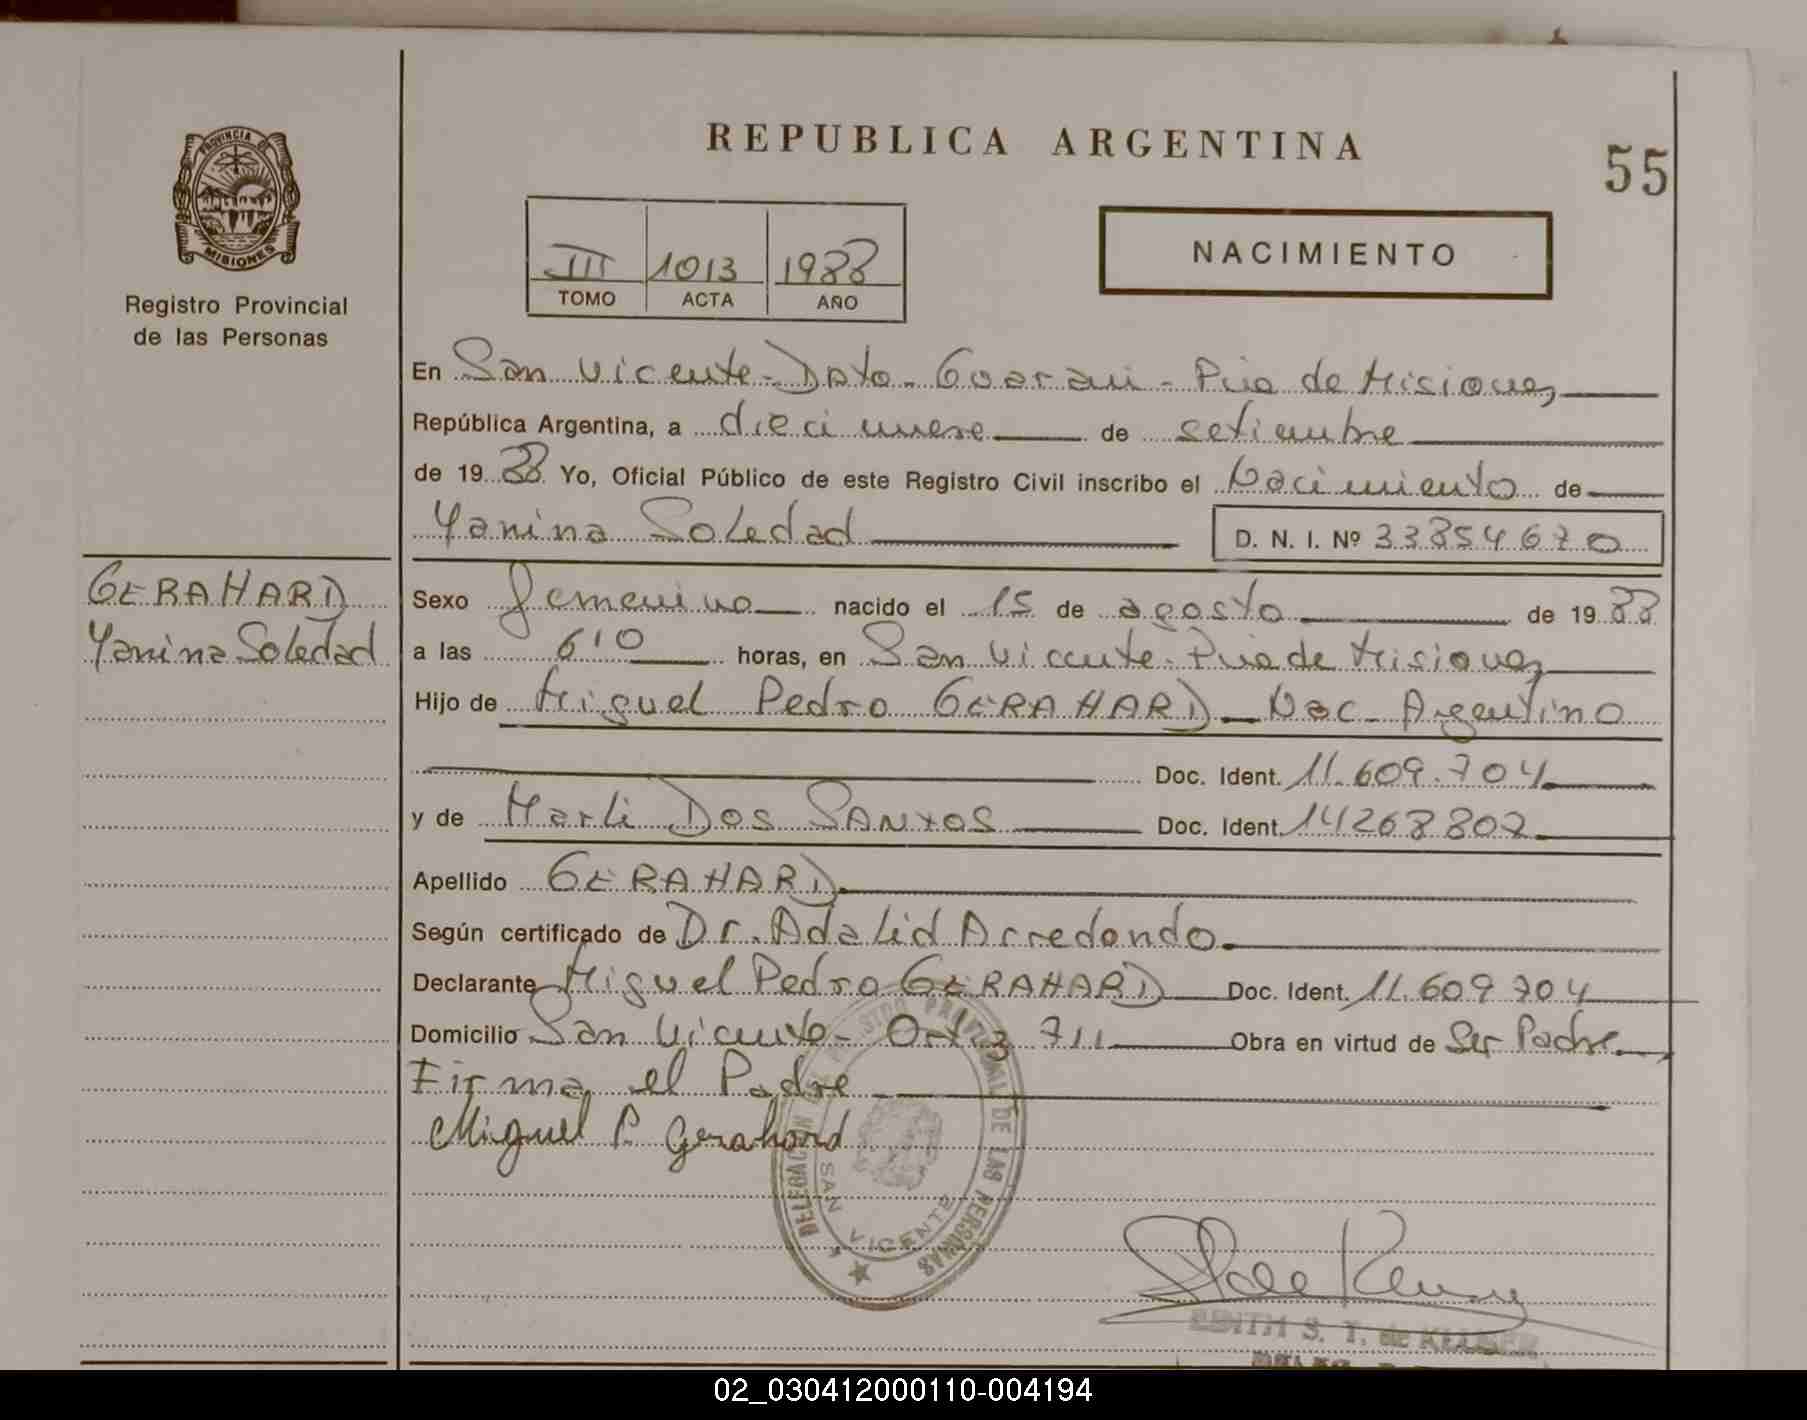 REPUBLICA ARGENTINA
55
PROVINCIA DE
MISIONES
Registro Provincial
de las Personas
III 1013 1988
TOMO ACTA AÑO
NACIMIENTO
En San Vicente - Dpto. Guarani - Pcia de Misiones
República Argentina, a diecinueve de setiembre
de 1988 Yo, Oficial Público de este Registro Civil inscribo el Nacimiento de
Yanina Soledad D. N. I. Nº 33854670
GERAHARD
Yanina Soledad
Sexo femenino nacido el 15 de agosto de 1988
a las 6'10 horas, en San Vicente - Pcia de Misiones
Hijo de Miguel Pedro GERAHARD - Nac. Argentino
Doc. Ident. 11.609.704
y de Marli DOS SANTOS Doc. Ident. 14268802
Apellido GERAHARD
Según certificado de Dr. Adalid Arredondo
Declarante Miguel Pedro GERAHARD Doc. Ident. 11.609704
Domicilio San Vicente - 711 Obra en virtud de Ser Padre
Firma el Padre
Miguel P. Gerahard
DELEGACION DEL REGISTRO PROVINCIAL DE LAS PERSONAS
SAN VICENTE
EDITH S. T. de
02_030412000110-004194